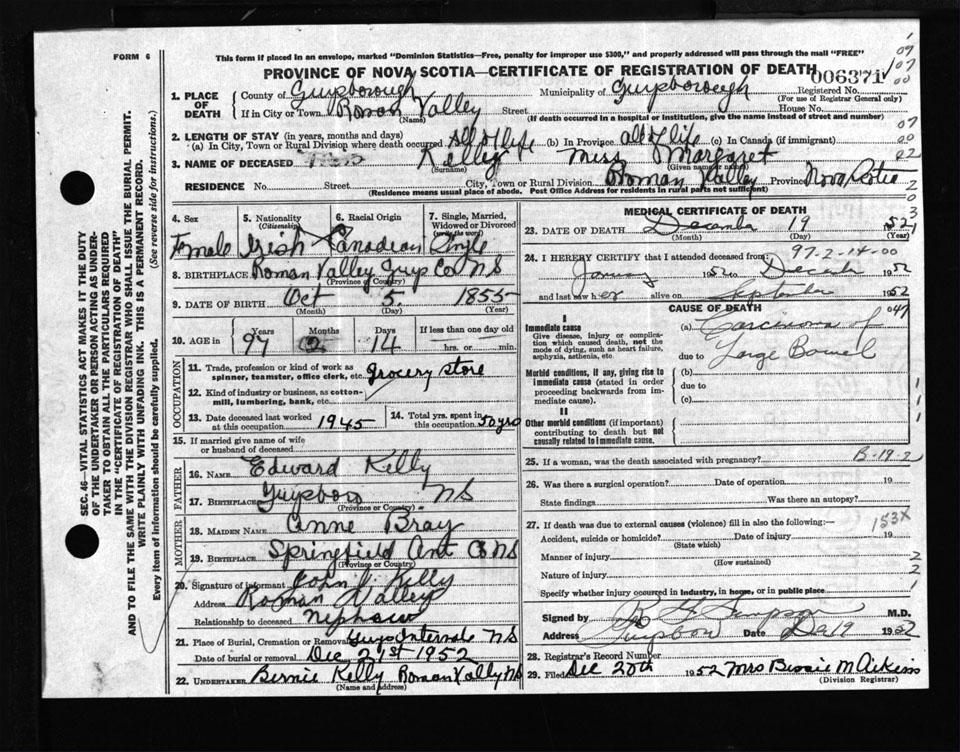 FORM 6
This form if placed in an envelope, marked "Dominion Statistics—Free, penalty for improper use $300," and properly addressed will pass through the mail "FREE"
PROVINCE OF NOVA SCOTIA—CERTIFICATE OF REGISTRATION OF DEATH
006371
Registered No.
(For use of Registrar General only)
1. PLACE OF DEATH
County of Guysborough Municipality of Guysborough
If in City or Town Roman Valley Street House No.
(Name) (If death occurred in a hospital or institution, give the name instead of street and number)
2. LENGTH OF STAY (in years, months and days)
(a) In City, Town or Rural Division where death occurred All of life (b) In Province all of life (c) In Canada (if immigrant)
3. NAME OF DECEASED Kelley Miss Margaret
(Surname) (Given name or names)
RESIDENCE No. Street City, Town or Rural Division Roman Valley Province Nova Scotia
(Residence means usual place of abode. Post Office Address for residents in rural parts not sufficient)
4. Sex Female
5. Nationality (Citizenship) Irish
6. Racial Origin Canadian
7. Single, Married, Widowed or Divorced (write the word) Single
8. BIRTHPLACE Roman Valley Guys Co NS
(Province or Country)
9. DATE OF BIRTH Oct 5 1855
(Month) (Day) (Year)
10. AGE in Years 97 Months 2 Days 14 If less than one day old hrs. or min.
OCCUPATION
11. Trade, profession or kind of work as spinner, teamster, office clerk, etc. Grocery store
12. Kind of industry or business, as cotton-mill, lumbering, bank, etc.
13. Date deceased last worked at this occupation 1945
14. Total yrs. spent in this occupation 50 yrs
15. If married give name of wife or husband of deceased
FATHER
16. NAME Edward Kelly
17. BIRTHPLACE Guysboro NS
(Province or Country)
MOTHER
18. MAIDEN NAME Anne Bray
19. BIRTHPLACE Springfield Ant Co NS
(Province or Country)
20. Signature of informant John Kelly
Address Roman Valley
Relationship to deceased Nephew
21. Place of Burial, Cremation or Removal Guys Intervale NS
Date of burial or removal Dec 21st 1952
22. UNDERTAKER Bernie Kelly Roman Valley NS
(Name and Address)
MEDICAL CERTIFICATE OF DEATH
23. DATE OF DEATH December 19 1952
(Month) (Day) (Year)
97-2-14-00
24. I HEREBY CERTIFY that I attended deceased from:
January 1952 to December 1952
and last saw her alive on September 1952
CAUSE OF DEATH
047
I
Immediate cause
Give disease, injury or complication which caused death, not the mode of dying, such as heart failure, asphyxia, asthenia, etc.
(a) Carcinoma of
due to Large Bowel
Morbid conditions, if any, giving rise to immediate cause (stated in order proceeding backwards from immediate cause).
(b)
due to
(c)
II
Other morbid conditions (if important) contributing to death but not causally related to immediate cause.
25. If a woman, was the death associated with pregnancy? B-19-2
26. Was there a surgical operation? Date of operation 19
State findings Was there an autopsy?
27. If death was due to external causes (violence) fill in also the following:— 153X
Accident, suicide or homicide? Date of injury 19
(State which)
Manner of injury
(How sustained)
Nature of injury
Specify whether injury occurred in industry, in home, or in public place
Signed by Sampson M.D.
Address Guysboro Date Dec 19 1952
28. Registrar's Record Number
29. Filed Dec 20th 1952 Mrs Bessie M Aikens
(Division Registrar)
SEC. 46—VITAL STATISTICS ACT MAKES IT THE DUTY
OF THE UNDERTAKER OR PERSON ACTING AS UNDER-
TAKER TO OBTAIN ALL THE PARTICULARS REQUIRED
IN THE "CERTIFICATE OF REGISTRATION OF DEATH"
AND TO FILE THE SAME WITH THE DIVISION REGISTRAR WHO SHALL ISSUE THE BURIAL PERMIT.
WRITE PLAINLY WITH UNFADING INK. THIS IS A PERMANENT RECORD.
Every item of information should be carefully supplied. (See reverse side for instructions.)